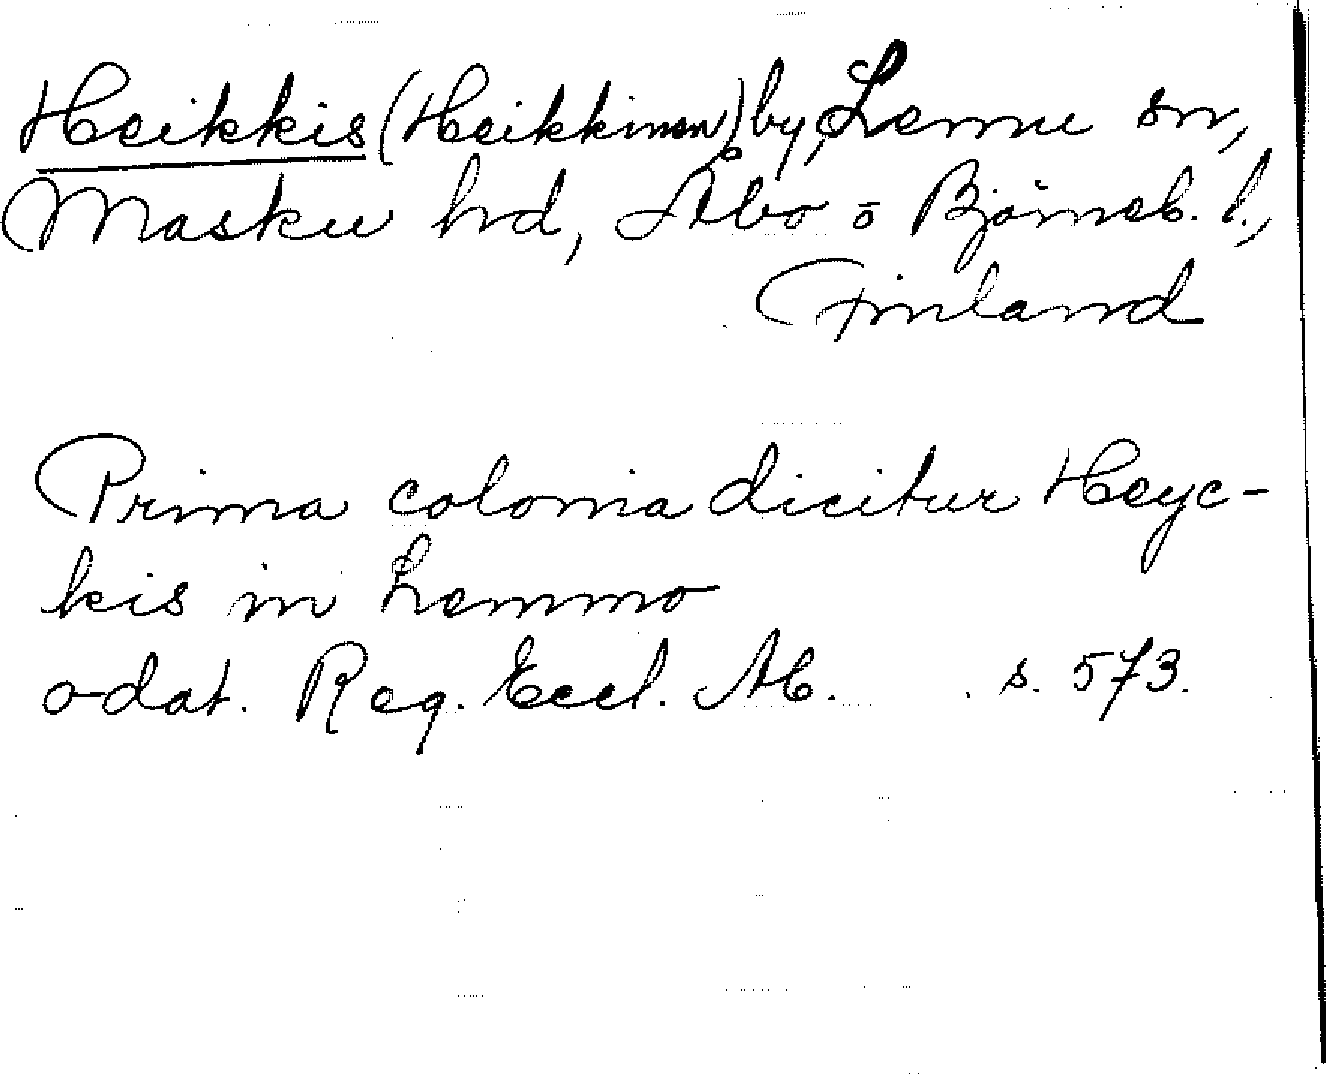 Heikkis (Heikkinen) by, Lemu sn,
Masku hd, Åbo o Björneb. l.,
Finland
Prima colonia dicitur Heyc-
kis in Lemmo
odat. Reg. Eccl. Ab. s. 573.